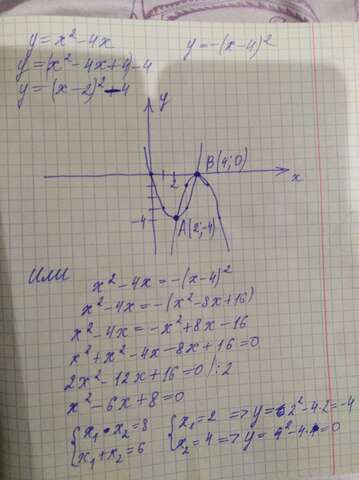 y = x² - 4x    y = -(x-4)²
y = (x² - 4x + 4) - 4
y = (x-2)² - 4
y
B(4;0)
2
x
-4
A(2;-4)
Или
x² - 4x = -(x-4)²
x² - 4x = -(x² - 8x + 16)
x² - 4x = -x² + 8x - 16
x² + x² - 4x - 8x + 16 = 0
2x² - 12x + 16 = 0 /:2
x² - 6x + 8 = 0
{x₁ • x₂ = 8    {x₁ = 2 => y = 2² - 4·2 = -4
x₁ + x₂ = 6    x₂ = 4 => y = 4² - 4·4 = 0